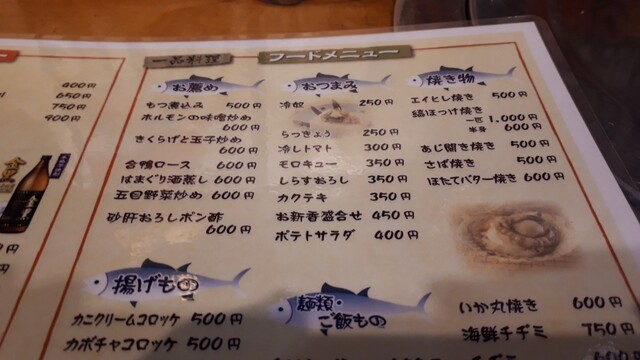 一品料理
フードメニュー
400円
650円
750円
900円
お薦め
もつ煮込み 500円
ホルモンの味噌炒め
600円
きくらげと玉子炒め
600円
合鴨ロース 600円
はまぐり酒蒸し 600円
五目野菜炒め 600円
砂肝おろしポン酢
600円
おつまみ
冷奴 250円
らっきょう 250円
冷しトマト 300円
モロキュー 350円
しらすおろし 350円
カクテキ 350円
お新香盛合せ 450円
ポテトサラダ 400円
焼き物
エイヒレ焼き 500円
縞ほっけ焼き
一匹 1.000円
半身 600円
あじ開き焼き 500円
さば焼き 500円
ほたてバター焼き 600円
いか丸焼き 600円
海鮮チヂミ 750円
揚げもの
カニクリームコロッケ 500円
カボチャコロッケ 500円
麺類・
ご飯もの